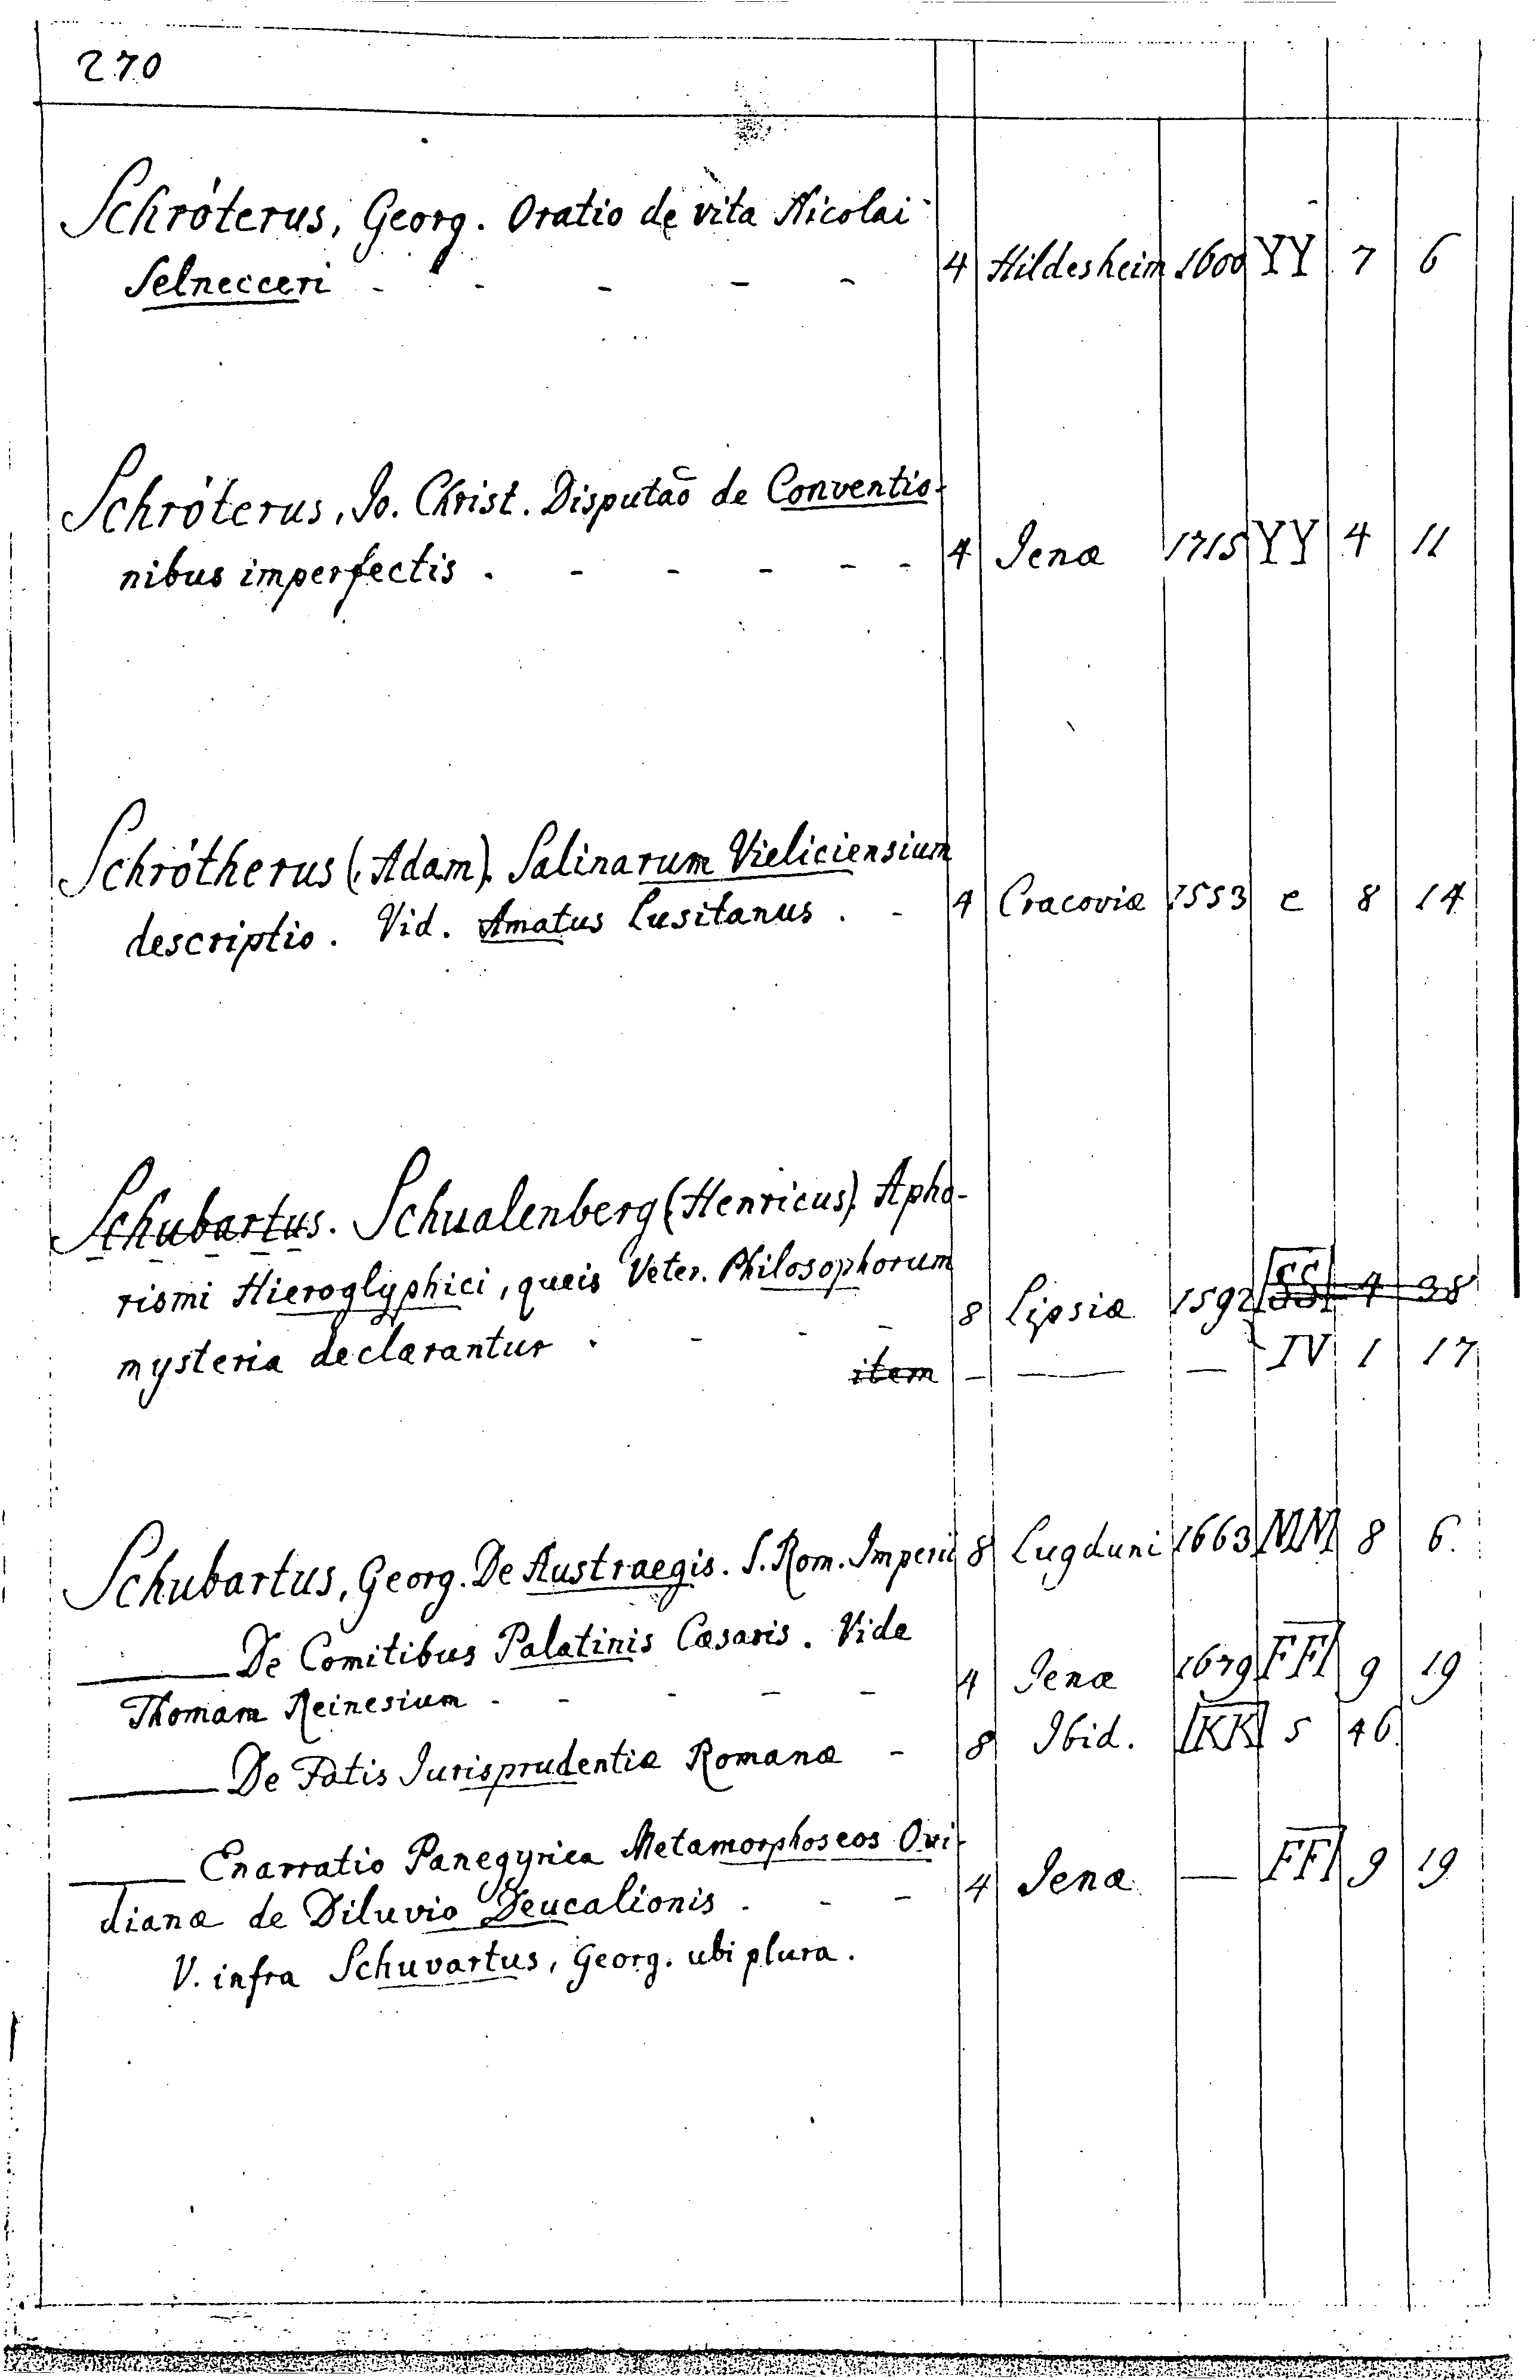 270
Schröterus, Georg. Oratio de vita Nicolai
Selnecceri - - - - - 4 Hildesheim 1600 YY 7 6
Schröterus, Jo. Christ. Disputaõ de Conventio-
nibus imperfectis . - - - - - 4 Jenæ 1715 YY 4 11
Schrötherus (Adam). Salinarum Vieliciensium
descriptio. Vid. Amatus Lusitanus . - 4 Cracoviæ 1553 e 8 14
Schubartus. Schualenberg (Henricus). Apho-
rismi Hieroglyphici, queis Veter. Philosophorum
mysteria declarantur . - - - 8 Lipsiæ 1592 SS 4 38
item — — — IV 1 17
Schubartus, Georg. De Austraegis. S. Rom. Imperii 8 Lugduni 1663 MM 8 6.
— De Comitibus Palatinis Cæsaris. Vide
Thomam Reinesium - - - - - 4 Jenæ 1679 FF 9 19
— De Fatis Jurisprudentiæ Romanæ - 8 Ibid. KK 5 46.
— Enarratio Panegyrica Metamorphoseos Ovi-
dianæ de Diluvio Deucalionis . - - 4 Jenæ — FF 9 19
V. infra Schuvartus, Georg. ubi plura.